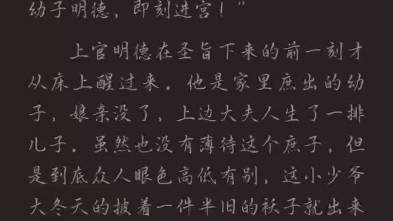 幼子明德，即刻进宫！”
上官明德在圣旨下来的前一刻才
从床上醒过来。他是家里庶出的幼
子，娘亲没了，上边大夫人生了一排
儿子。虽然也没有薄待这个庶子，但
是到底众人眼色高低有别，这小少爷
大冬天的披着一件半旧的袄子就出来